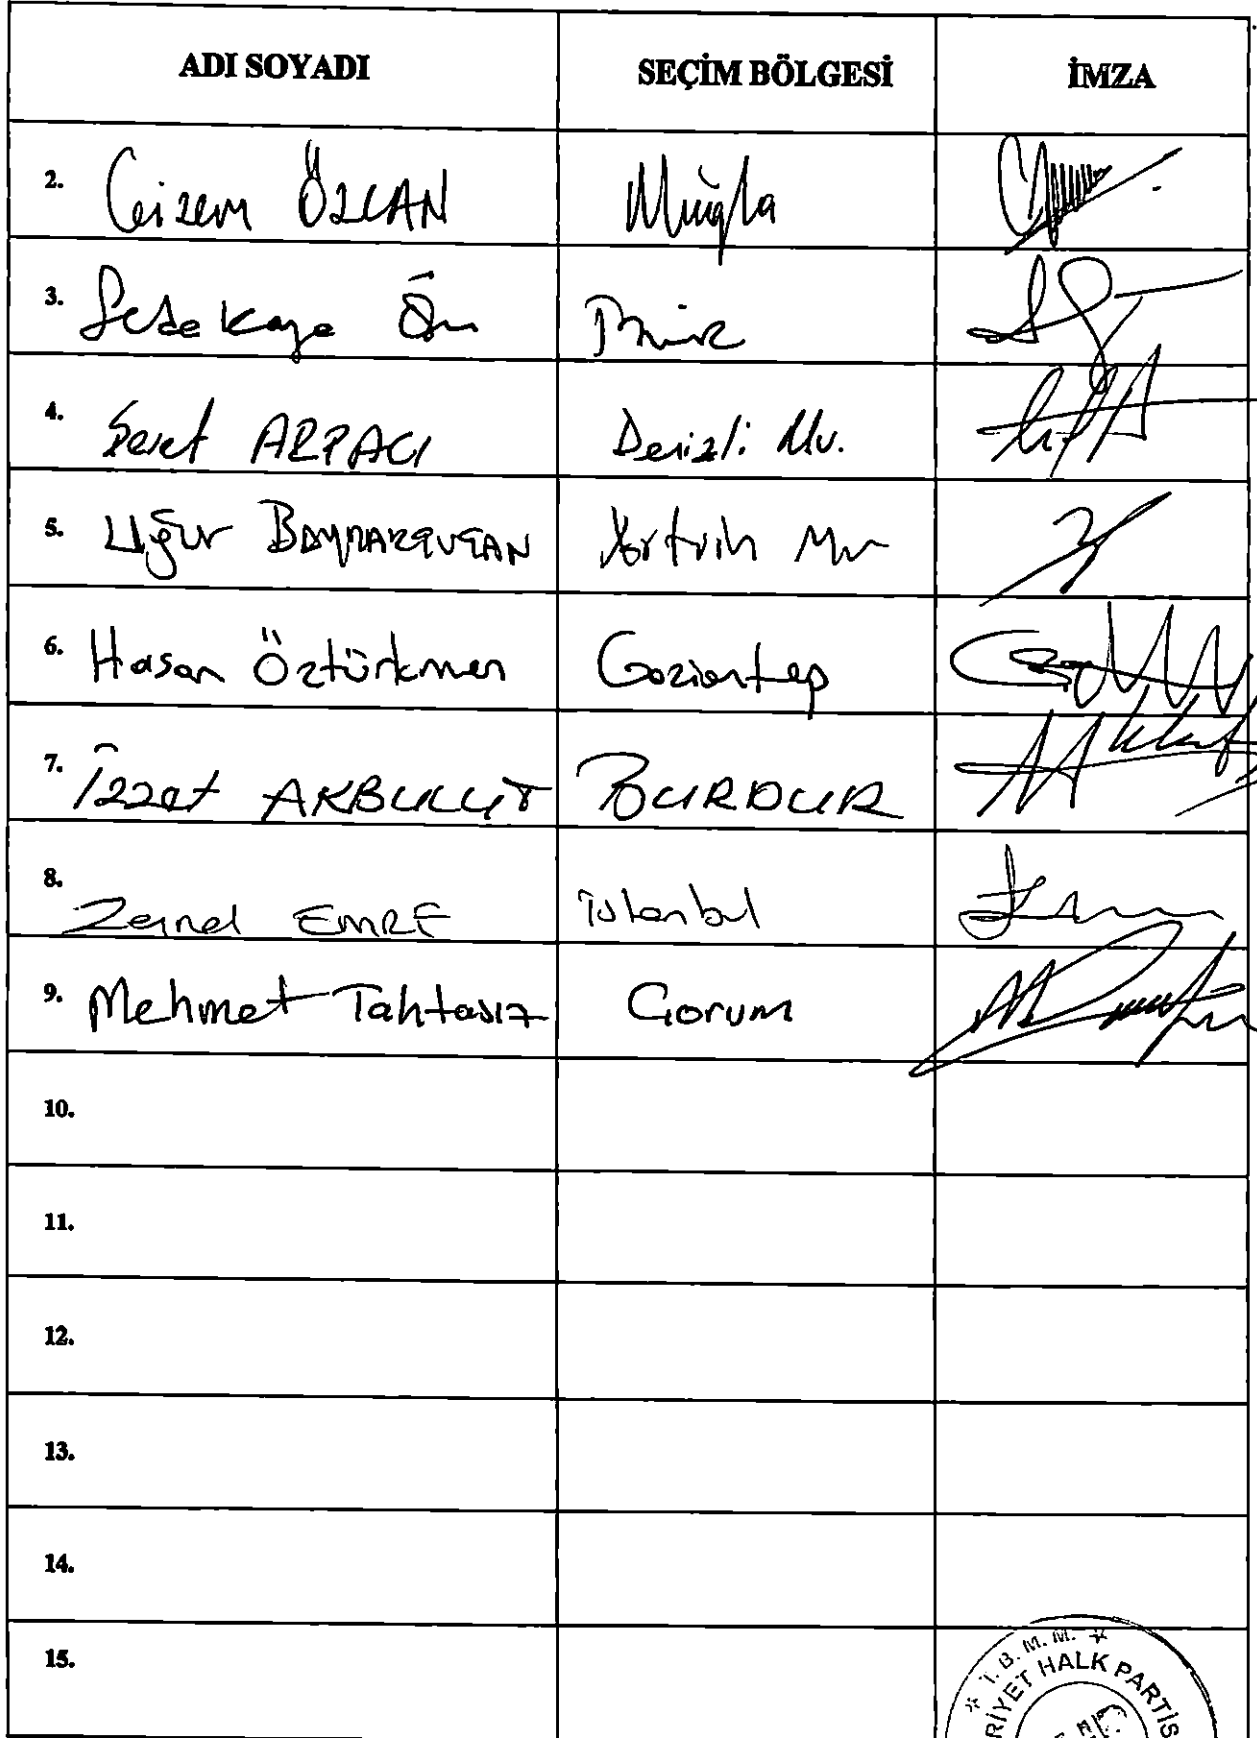 ADI SOYADI SEÇİM BÖLGESİ İMZA
2. Gizem ÖZCAN Muğla
3. Seda Kaya Ön İzmir
4. Şeref ARPACI Denizli Mv.
5. Uğur BAYRAKTUTAN Artvin Mv
6. Hasan Öztürkmen Gaziantep
7. İzzet AKBULUT BURDUR
8. Zeynel EMRE İstanbul
9. Mehmet Tahtasız Çorum
10.
11.
12.
13.
14.
15.
* T.B.M.M. *
RİYET HALK PARTİS